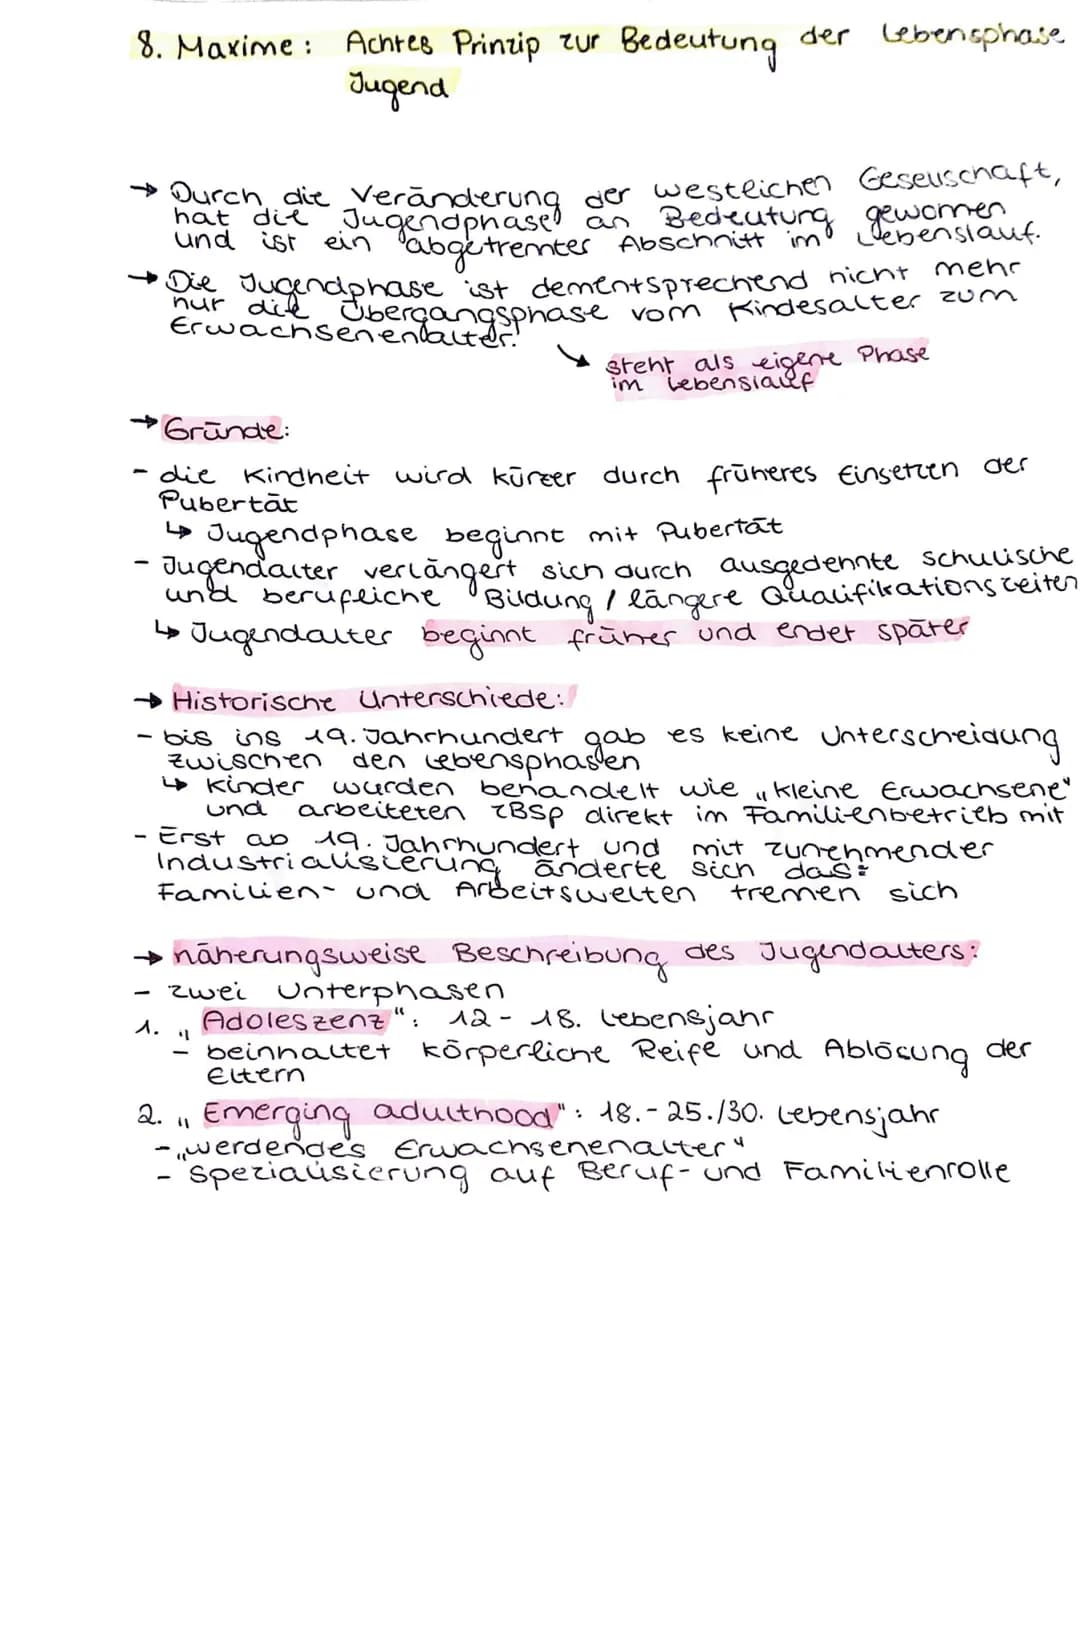 8. Maxime: Achtes Prinzip zur Bedeutung der Lebensphase
Jugend
→ Durch die Veränderung der westlichen Gesellschaft,
hat die Jugendphase an Bedeutung gewonnen
und ist ein abgetrennter Abschnitt im Lebenslauf.
→ Die Jugendphase ist dementsprechend nicht mehr
nur die Übergangsphase vom Kindesalter zum
Erwachsenenalter.
↘ steht als eigene Phase
im Lebenslauf
→ Gründe:
- die Kindheit wird kürzer durch früheres Einsetzen der
Pubertät
↳ Jugendphase beginnt mit Pubertät
- Jugendalter verlängert sich durch ausgedehnte schulische
und berufliche Bildung / längere Qualifikationszeiten
↳ Jugendalter beginnt früher und endet später
→ Historische Unterschiede:
- bis ins 19. Jahrhundert gab es keine Unterscheidung
zwischen den Lebensphasen
↳ Kinder wurden behandelt wie „kleine Erwachsene"
und arbeiteten zBsp direkt im Familienbetrieb mit
- Erst ab 19. Jahrhundert und mit zunehmender
Industrialisierung änderte sich das:
Familien- und Arbeitswelten trennen sich
→ näherungsweise Beschreibung des Jugendalters:
- zwei Unterphasen
1. „Adoleszenz": 12-18. Lebensjahr
- beinhaltet körperliche Reife und Ablösung der
Eltern
2. „Emerging adulthood": 18.-25./30. Lebensjahr
- „werdendes Erwachsenenalter"
- Spezialisierung auf Beruf- und Familienrolle